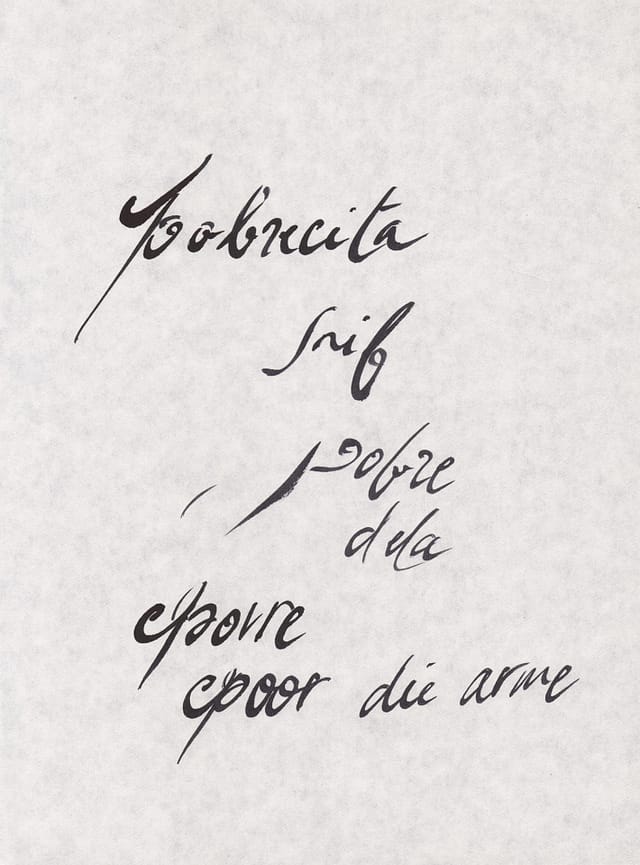 pobrecita
snif
pobre
dela
povre
poor die arme